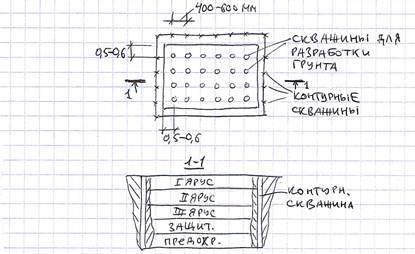 400-600 ММ
СКВАЖИНЫ ДЛЯ
РАЗРАБОТКИ
ГРУНТА
0,5-0,6
1
1
КОНТУРНЫЕ
СКВАЖИНЫ
0,5-0,6
1-1
I ЯРУС
II ЯРУС
III ЯРУС
ЗАЩИТ.
ПРЕДОХР.
КОНТУРН.
СКВАЖИНА